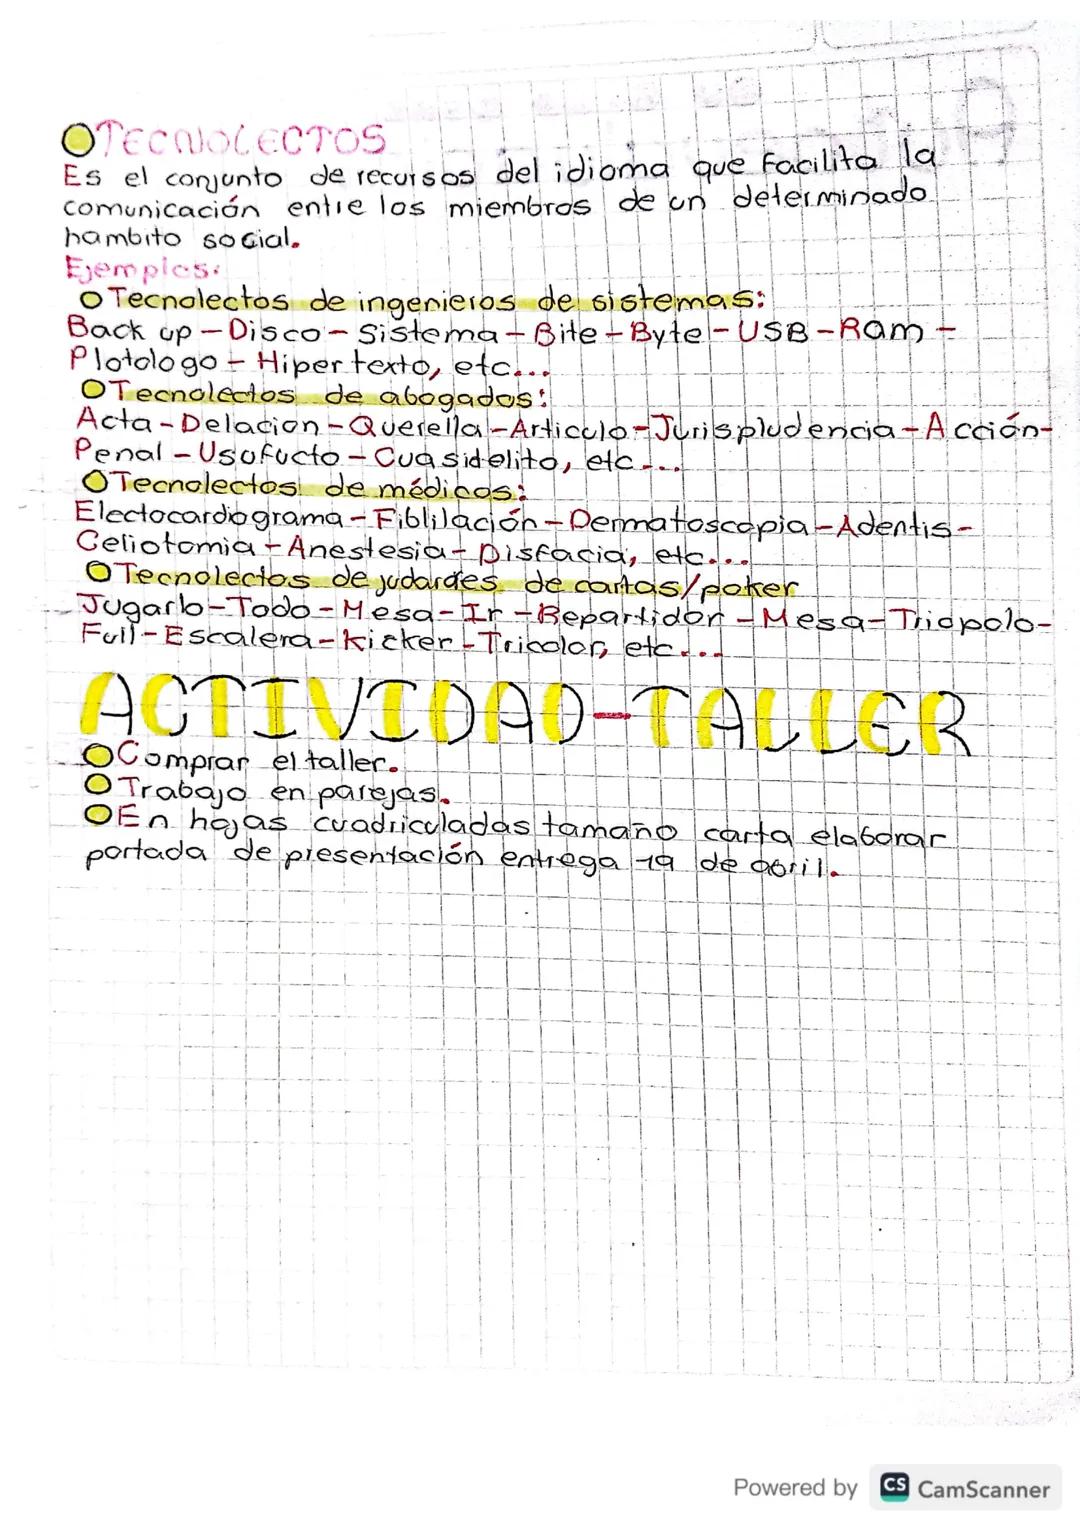 TECNOLECTOS
Es el conjunto de recursos del idioma que facilita la
comunicación entre los miembros de un determinado
hambito social.
Ejemplos:
Tecnolectos de ingenieros de sistemas:
Back up - Disco - Sistema - Bite - Byte - USB - Ram -
Plotologo - Hipertexto, etc...
Tecnolectos de abogados:
Acta - Delacion - Querella - Articulo - Jurispludencia - Acción -
Penal - Usofucto - Cuasidelito, etc...
Tecnolectos de médicos:
Electocardiograma - Fiblilación - Dermatoscopia - Adentis -
Celiotomia - Anestesia - Disfacia, etc...
Tecnolectos de judardes de cartas/poker
Jugarlo - Todo - Mesa - Ir - Repartidor - Mesa - Triopolo -
Full - Escalera - Kicker - Tricolor, etc...
ACTIVIDAD-TALLER
Comprar el taller.
Trabajo en parejas.
En hojas cuadriculadas tamaño carta elaborar
portada de presentación entrega 19 de abril.
Powered by CS CamScanner